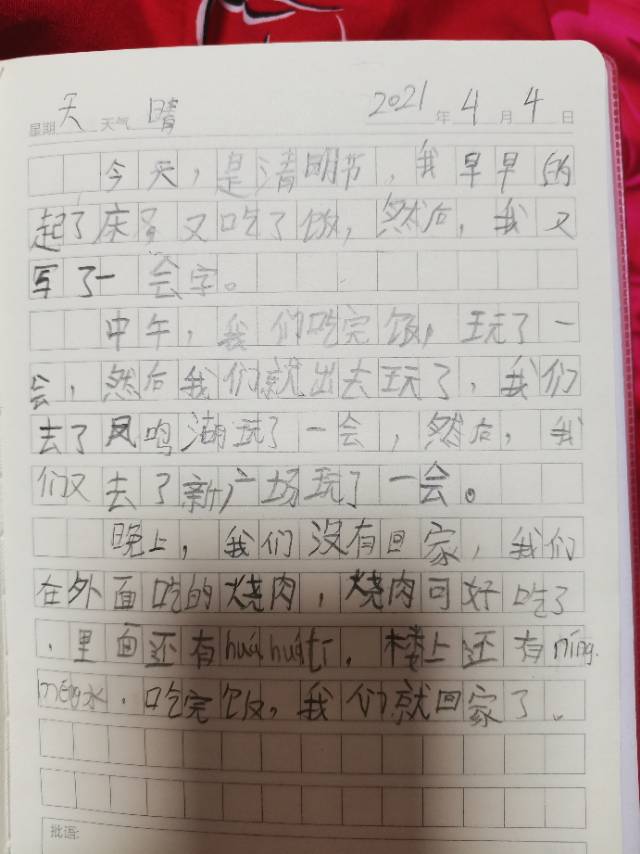 星期天 天气 晴 2021年4月4日
今天，是清明节，我早早的
起了床又吃了饭，然后，我又
写了一会字。
中午，我们吃完饭，玩了一
会，然后我们就出去玩了，我们
去了凤鸣湖玩了一会，然后，我
们又去了新广场玩了一会。
晚上，我们没有回家，我们
在外面吃的烧肉，烧肉可好吃了
，里面还有huá huá tī，楼上还有níng
méng水，吃完饭，我们就回家了。
批语：